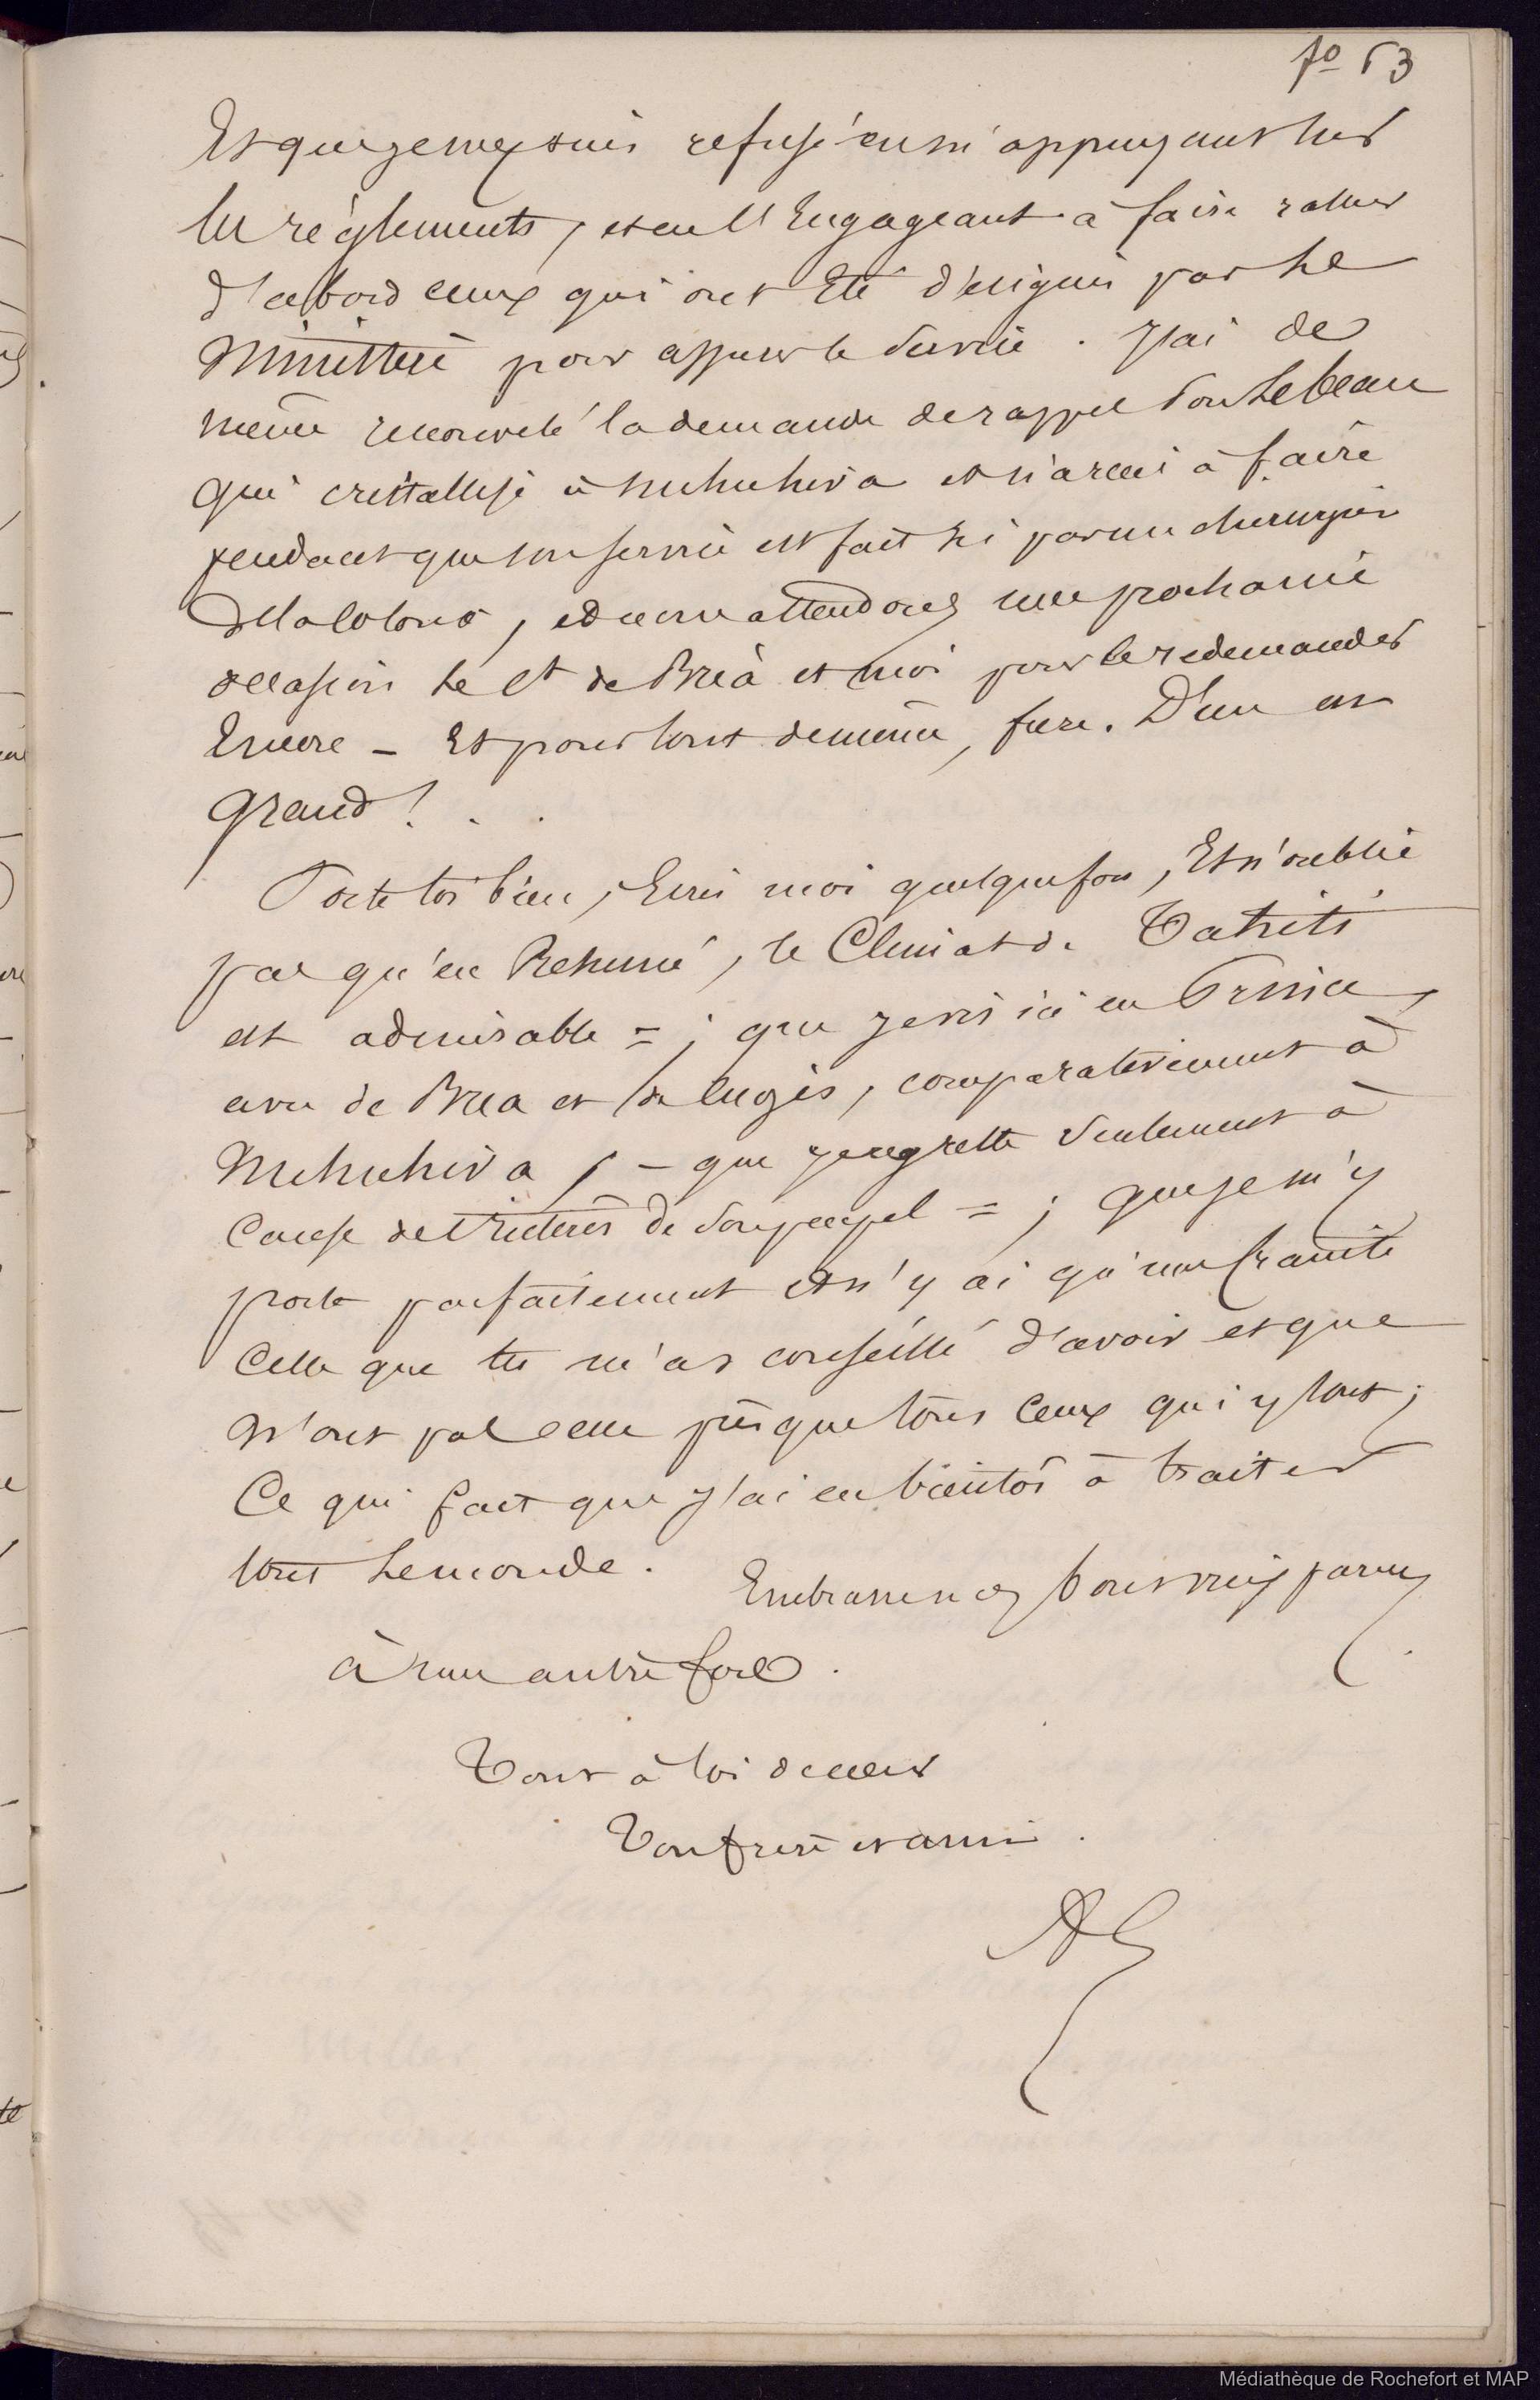 fo 63
Et que je m'y suis refusé en m'appuyant sur
les règlements, et en l'Engageant à faire rallier
d'abord ceux qui ont Eté désignés par Le
Ministère pour assurer le Service. J'ai de
même renouvelé la demande de rappel Lebeau
qui cristallise à nuhuhiva et n'a rien à faire
pendant que son service est fait ici par un chirurgien
de la Colonie, et nous attendons une prochaine
occasion le Ct de Bréa et moi pour le redemander
Encore – Et pour tout de même, D'un an
grand! . .
Porte toi bien, Ecris moi quelquefois, Et n'oublie
pas qu'en Résumé, le Climat de Tahiti
est admirable = ; que je vis ici en Prince,
avec de Bréa et de Lugès, comparativement à
Nuhuhiva ; – que je regrette Seulement à
Cause de l'intérêt de = ; que je m'y
porte parfaitement et n'y ai qu'une
Celle que tu m'as conseillé d'avoir et que
N'ont pas eue presque tous Ceux qui y sont ;
Ce qui fait que j'ai eu bientôt à traiter
tout Le monde.
Embrasse
à une autre fois.
Tout à toi de cœur
Ton frère et ami.
AG
Médiathèque de Rochefort et MAP